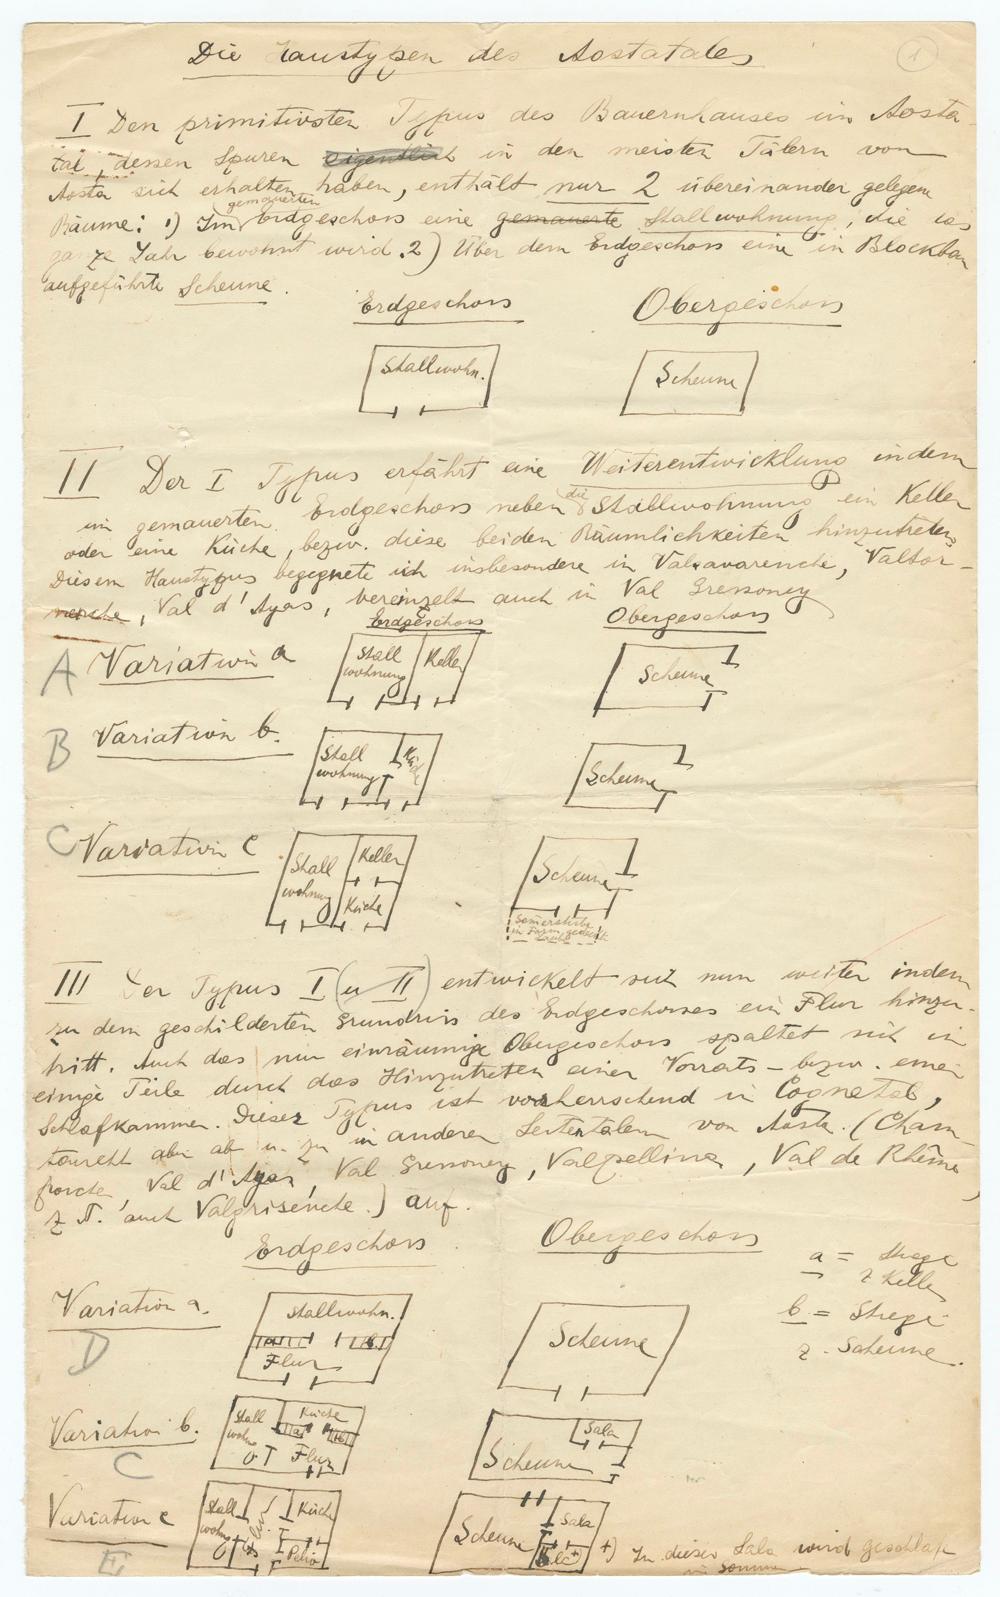 Die Haustypen des Aostatales
1
I Den primitivsten Typus des Bauernhauses im Aosta-
tal, dessen Spuren eigentlich in den meisten Tälern von
Aosta sich erhalten haben, enthält nur 2 übereinander gelegene
gemauerten
Räume: 1) Im Erdgeschoss eine gemauerte Stallwohnung, die das
ganze Jahr bewohnt wird. 2) Über dem Erdgeschoss eine in Blockbau
aufgeführte Scheune.
Erdgeschoss Obergeschoss
Stallwohn. Scheune
II Der I Typus erfährt eine Weiterentwicklung indem
im gemauerten Erdgeschoss neben die Stallwohnung ein Keller
oder eine Küche, bezw. diese beiden Räumlichkeiten hinzutreten.
Diesem Haustypus begegnete ich insbesondere in Valsavarenche, Valtor-
nenche, Val d'Ayas, vereinzelt auch in Val Gressoney
Erdgeschoss Obergeschoss
A Variation a Stall Keller Scheune
wohnung
B Variation b. Stall Küche Scheune
wohnung
C Variation c Stall Keller Scheune
wohnung Küche
in Form gedeckt
Laube
III Der Typus I (u II) entwickelt sich nun weiter indem
zu dem geschilderten Grundriss des Erdgeschosses ein Flur hinzu-
tritt. Auch das nur einräumige Obergeschoss spaltet sich in
einige Teile durch das Hinzutreten einer Vorrats- bezw. einer
Schlafkammer. Dieser Typus ist vorherrschend in Cognetal,
taucht aber ab u. zu in anderen Seitentälern von Aosta. (Cham-
porcher, Val d'Ayas, Val Gressoney, Valpelline, Val de Rhême,
z. T. auch Valgrisenche.) auf.
Erdgeschoss Obergeschoss
a = Stiege
z Keller
b = Stiege
z. Scheune.
Variation a. Stallwohn. Scheune
D a b
Flur
Variation b. Stall Küche Sala
wohng a b
Flur Scheune
C
Variation c Stall Flur Küche Scheune Sala
wohng
E
+) In dieser Sala wird geschlaf
im Sommer